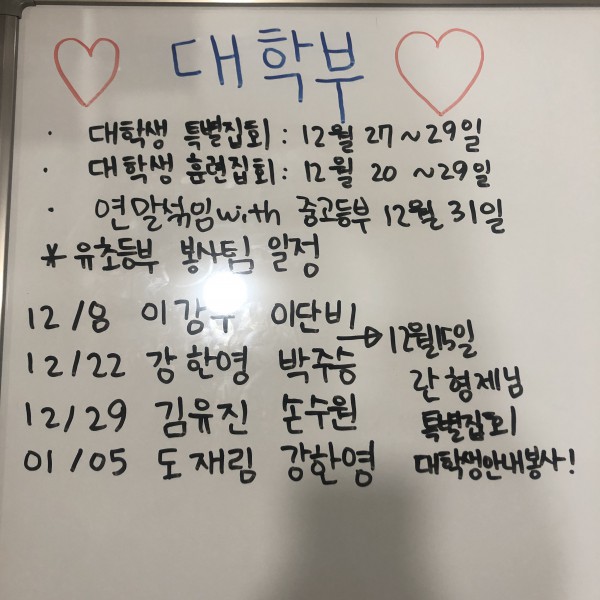 대학부
· 대학생 특별집회 : 12월 27~29일
· 대학생 훈련집회 : 12월 20 ~29일
· 연말섞임with 중고등부 12월 31일
* 유초등부 봉사팀 일정
12/8 이강우 이단비
12/22 강한영 박주승
12/29 김유진 손수원
01/05 도재림 강한영
→ 12월15일
란형제님
특별집회
대학생안내봉사!